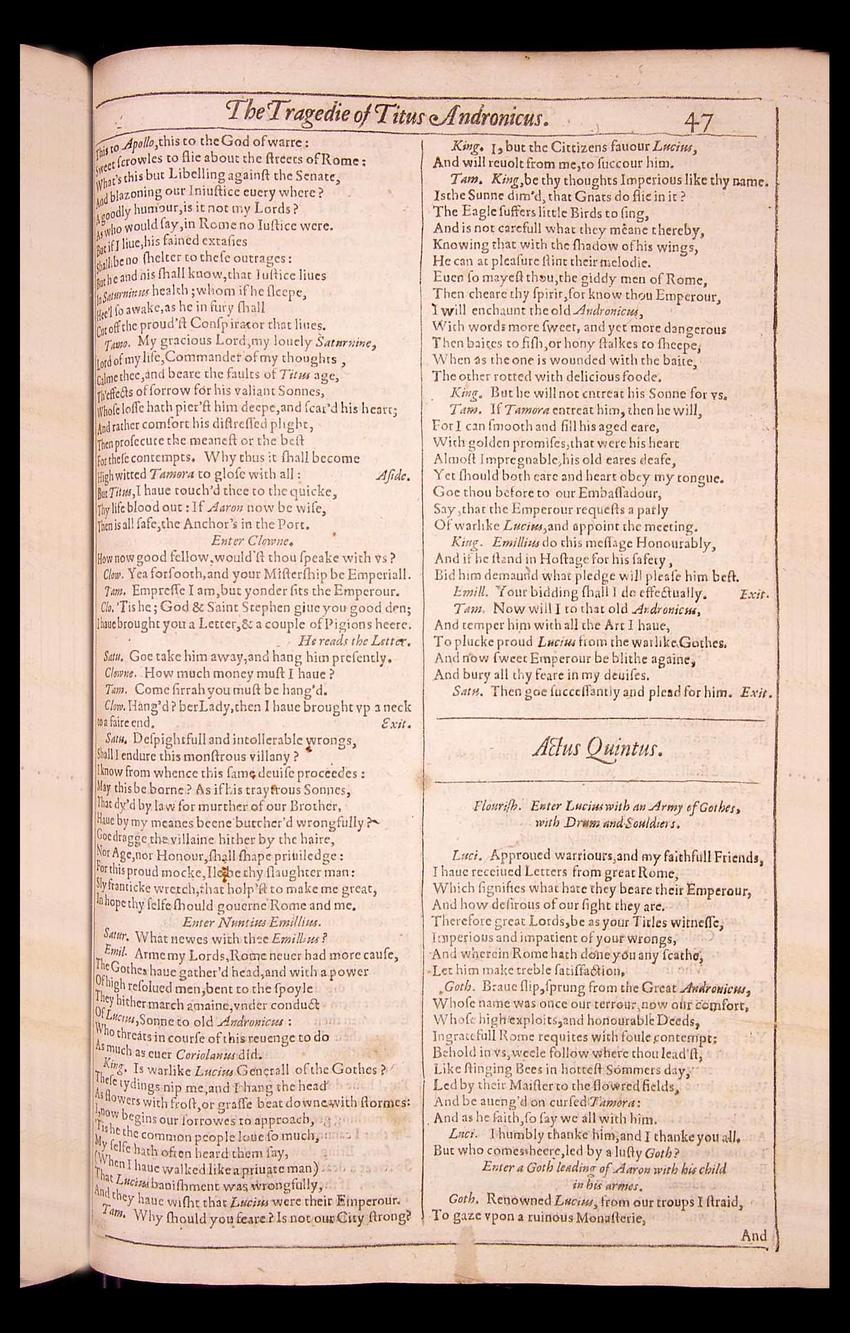 The Tragedie of Titus Andronicus. 47
This to Apollo, this to the God of warre:
Sweet ſcrowles to flie about the ſtreets of Rome:
What's this but Libelling againſt the Senate,
And blazoning our Iniuſtice euery where?
A goodly humour, is it not my Lords?
As who would ſay, in Rome no Iuſtice were.
But if I liue, his fained extaſies
Shall be no ſhelter to theſe outrages:
But he and his ſhall know, that Iuſtice liues
In Saturninus health; whom if he ſleepe,
Hee'l ſo awake, as he in fury ſhall
Cut off the proud'ſt Conſpirator that liues.
Tamo. My gracious Lord, my louely Saturnine,
Lord of my life, Commander of my thoughts,
Calme thee, and beare the faults of Titus age,
Th'effects of ſorrow for his valiant Sonnes,
Whoſe loſſe hath pier'ſt him deepe, and ſcar'd his heart;
And rather comfort his diſtreſſed plight,
Then proſecute the meaneſt or the beſt
For theſe contempts. Why thus it ſhall become
High witted Tamora to gloſe with all: Aſide.
But Titus, I haue touch'd thee to the quicke,
Thy life blood out: If Aaron now be wiſe,
Then is all ſafe, the Anchor's in the Port.
Enter Clowne.
How now good fellow, would'ſt thou ſpeake with vs?
Clow. Yea forſooth, and your Miſterſhip be Emperiall.
Tam. Empreſſe I am, but yonder ſits the Emperour.
Clo. 'Tis he; God & Saint Stephen giue you good den;
I haue brought you a Letter, & a couple of Pigions heere.
He reads the Letter.
Satu. Goe take him away, and hang him preſently.
Clowne. How much money muſt I haue?
Tam. Come ſirrah you muſt be hang'd.
Clow. Hang'd? ber Lady, then I haue brought vp a neck
to a faire end. Exit.
Satu. Deſpightfull and intollerable wrongs,
Shall I endure this monſtrous villany?
I know from whence this ſame deuiſe proceedes:
May this be borne? As if his traytrous Sonnes,
That dy'd by law for murther of our Brother,
Haue by my meanes beene butcher'd wrongfully?
Goe dragge the villaine hither by the haire,
Nor Age, nor Honour, ſhall ſhape priuiledge:
For this proud mocke, Ile be thy ſlaughter man:
Sly franticke wretch, that holp'ſt to make me great,
In hope thy ſelfe ſhould gouerne Rome and me.
Enter Nuntius Emillius.
Satur. What newes with thee Emillius?
Emil. Arme my Lords, Rome neuer had more cauſe,
The Gothes haue gather'd head, and with a power
Of high reſolued men, bent to the ſpoyle
They hither march amaine, vnder conduct
Of Lucius, Sonne to old Andronicus:
Who threats in courſe of this reuenge to do
As much as euer Coriolanus did.
King. Is warlike Lucius Generall of the Gothes?
Theſe tydings nip me, and I hang the head
As flowers with froſt, or graſſe beat downe with ſtormes:
I, now begins our ſorrowes to approach,
'Tis he the common people loue ſo much,
My ſelfe hath often heard them ſay,
(When I haue walked like a priuate man)
That Lucius baniſhment was wrongfully,
And they haue wiſht that Lucius were their Emperour.
Tam. Why ſhould you feare? Is not our City ſtrong?
King. I, but the Cittizens fauour Lucius,
And will reuolt from me, to ſuccour him.
Tam. King, be thy thoughts Imperious like thy name.
Is the Sunne dim'd, that Gnats do flie in it?
The Eagle ſuffers little Birds to ſing,
And is not carefull what they meane thereby,
Knowing that with the ſhadow of his wings,
He can at pleaſure ſtint their melodie.
Euen ſo mayeſt thou, the giddy men of Rome,
Then cheare thy ſpirit, for know thou Emperour,
I will enchaunt the old Andronicus,
With words more ſweet, and yet more dangerous
Then baites to fiſh, or hony ſtalkes to ſheepe,
When as the one is wounded with the baite,
The other rotted with delicious foode.
King. But he will not entreat his Sonne for vs.
Tam. If Tamora entreat him, then he will,
For I can ſmooth and fill his aged eare,
With golden promiſes, that were his heart
Almoſt Impregnable, his old eares deafe,
Yet ſhould both eare and heart obey my tongue.
Goe thou before to our Embaſſadour,
Say, that the Emperour requeſts a parly
Of warlike Lucius, and appoint the meeting.
King. Emillius do this meſſage Honourably,
And if he ſtand in Hoſtage for his ſafety,
Bid him demaund what pledge will pleaſe him beſt.
Emill. Your bidding ſhall I do effectually. Exit.
Tam. Now will I to that old Andronicus,
And temper him with all the Art I haue,
To plucke proud Lucius from the warlike Gothes.
And now ſweet Emperour be blithe againe,
And bury all thy feare in my deuiſes.
Satu. Then goe ſucceſſantly and plead for him. Exit.
Actus Quintus.
Flouriſh. Enter Lucius with an Army of Gothes,
with Drum and Souldiers.
Luci. Approued warriours, and my faithfull Friends,
I haue receiued Letters from great Rome,
Which ſignifies what hate they beare their Emperour,
And how deſirous of our ſight they are.
Therefore great Lords, be as your Titles witneſſe,
Imperious and impatient of your wrongs,
And wherein Rome hath done you any ſcathe,
Let him make treble ſatisfaction.
Goth. Braue ſlip, ſprung from the Great Andronicus,
Whoſe name was once our terrour, now our comfort,
Whoſe high exploits, and honourable Deeds,
Ingratefull Rome requites with foule contempt:
Behold in vs, weele follow where thou lead'ſt,
Like ſtinging Bees in hotteſt Sommers day,
Led by their Maiſter to the flowred fields,
And be aueng'd on curſed Tamora:
And as he ſaith, ſo ſay we all with him.
Luci. I humbly thanke him, and I thanke you all.
But who comes heere, led by a luſty Goth?
Enter a Goth leading of Aaron with his child
in his armes.
Goth. Renowned Lucius, from our troups I ſtraid,
To gaze vpon a ruinous Monaſterie,
And